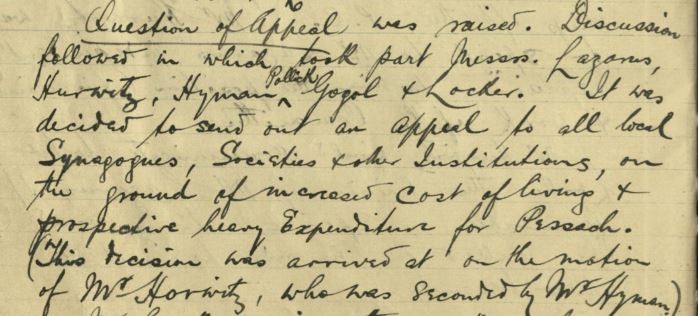 Question of Appeal was raised. Discussion
followed in which took part Messrs. Lazarus,
Hurwitz, Hyman, Pollick, Gogol & Locker. It was
decided to send out an appeal to all local
Synagogues, Societies & other Institutions, on
the ground of increased cost of living &
prospective heavy Expenditure for Pessach.
(This decision was arrived at on the motion
of Mr Horwitz, who was seconded by Mr Hyman.)